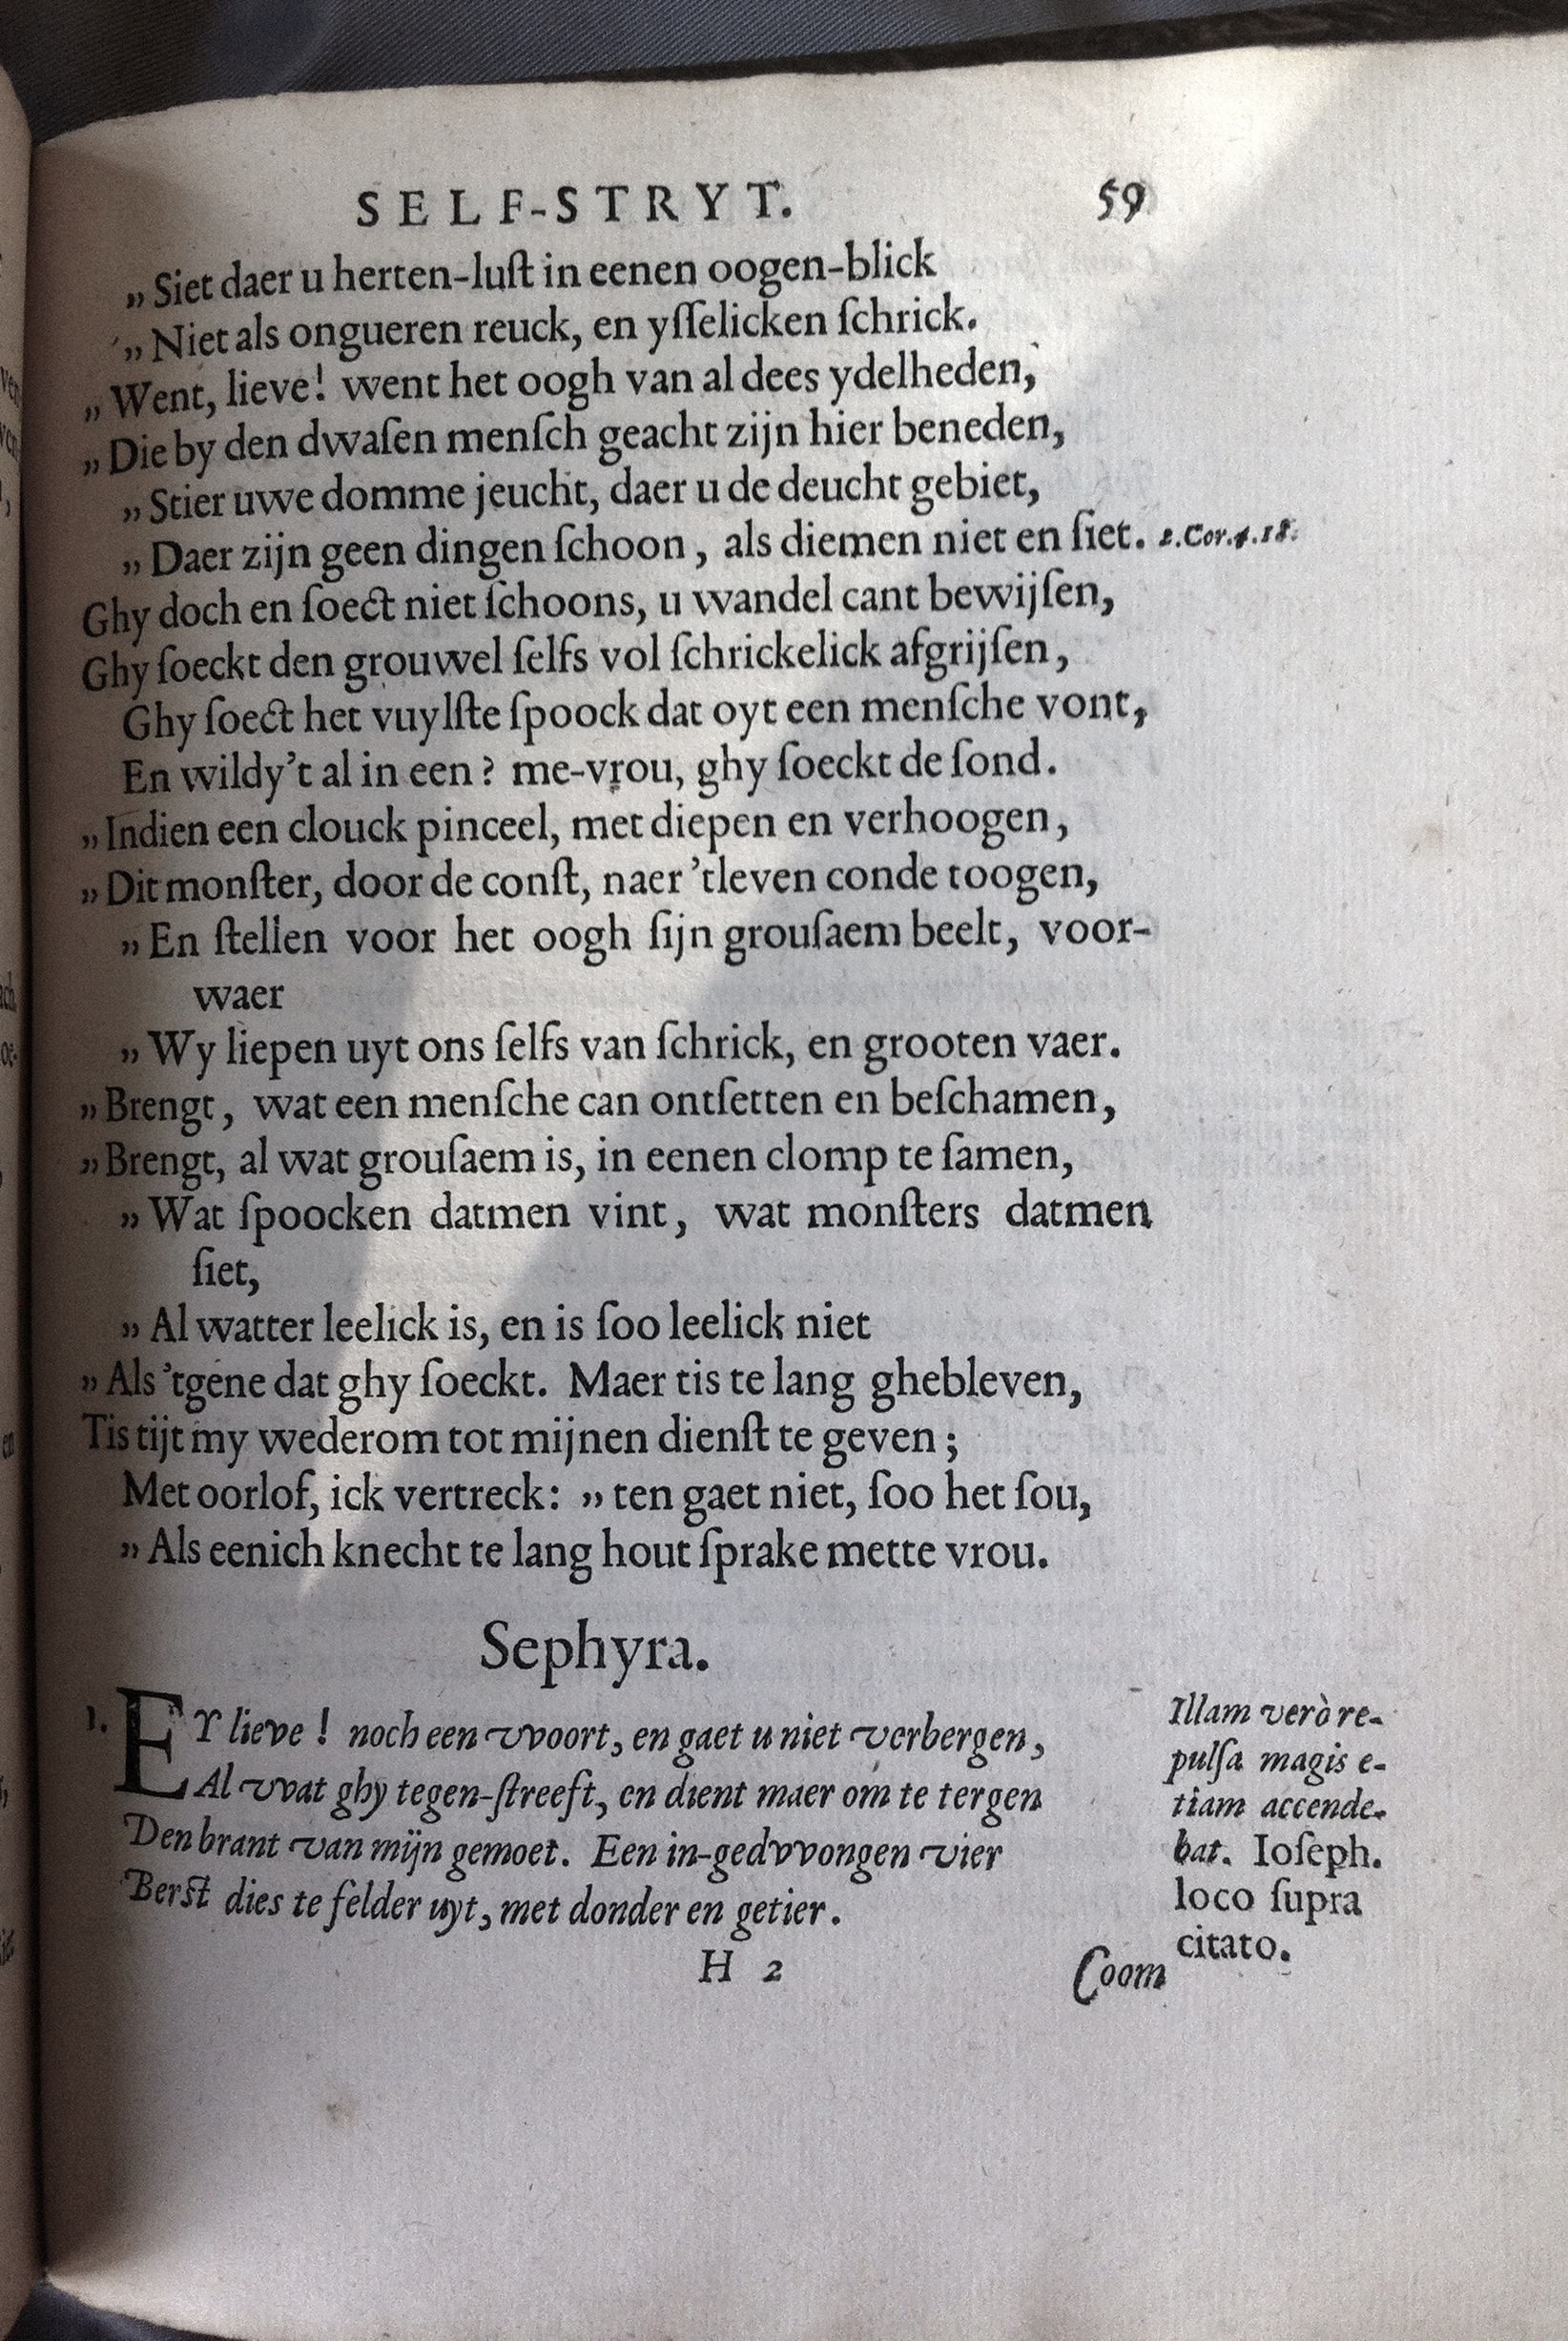 SELF-STRYT. 59
„ Siet daer u herten-luſt in eenen oogen-blick
„ Niet als ongueren reuck, en yſſelicken ſchrick.
„ Went, lieve! went het oogh van al dees ydelheden,
„ Die by den dwaſen menſch geacht zijn hier beneden,
„ Stier uwe domme jeucht, daer u de deucht gebiet,
„ Daer zijn geen dingen ſchoon, als diemen niet en ſiet. 2.Cor.4.18.
Ghy doch en ſoect niet ſchoons, u wandel cant bewijſen,
Ghy ſoeckt den grouwel ſelfs vol ſchrickelick afgrijſen,
Ghy ſoect het vuylſte ſpoock dat oyt een menſche vont,
En wildy't al in een? me-vrou, ghy ſoeckt de ſond.
„ Indien een clouck pinceel, met diepen en verhoogen,
„ Dit monſter, door de conſt, naer 'tleven conde toogen,
„ En ſtellen voor het oogh ſijn grouſaem beelt, voor-
waer
„ Wy liepen uyt ons ſelfs van ſchrick, en grooten vaer.
„ Brengt, wat een menſche can ontſetten en beſchamen,
„ Brengt, al wat grouſaem is, in eenen clomp te ſamen,
„ Wat ſpoocken datmen vint, wat monſters datmen
ſiet,
„ Al watter leelick is, en is ſoo leelick niet
„ Als 'tgene dat ghy ſoeckt. Maer tis te lang ghebleven,
Tis tijt my wederom tot mijnen dienſt te geven;
Met oorlof, ick vertreck: „ ten gaet niet, ſoo het ſou,
„ Als eenich knecht te lang hout ſprake mette vrou.
Sephyra.
1. EY lieve! noch een vvoort, en gaet u niet verbergen,
Al vvat ghy tegen-ſtreeft, en dient maer om te tergen
Den brant van mijn gemoet. Een in-gedvvongen vier
Berst dies te felder uyt, met donder en getier.
Illam verò re-
pulſa magis e-
tiam accende-
bat. Ioſeph.
loco ſupra
citato.
H 2
Coom